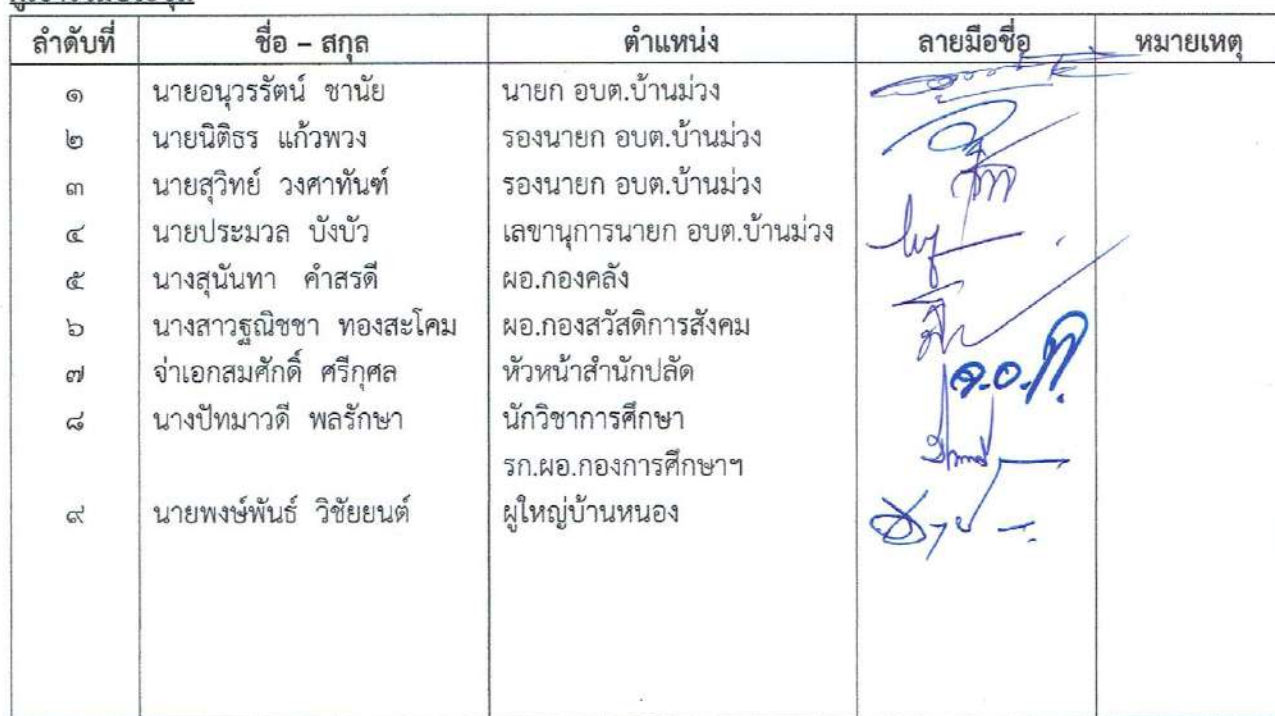 ลำดับที่ ชื่อ – สกุล ตำแหน่ง ลายมือชื่อ หมายเหตุ
๑ นายอนุวรรัตน์ ชานัย นายก อบต.บ้านม่วง
๒ นายนิติธร แก้วพวง รองนายก อบต.บ้านม่วง
๓ นายสุวิทย์ วงศาทันฑ์ รองนายก อบต.บ้านม่วง
๔ นายประมวล บังบัว เลขานุการนายก อบต.บ้านม่วง
๕ นางสุนันทา คำสรดี ผอ.กองคลัง
๖ นางสาวฐณิชชา ทองสะโคม ผอ.กองสวัสดิการสังคม
๗ จ่าเอกสมศักดิ์ ศรีกุศล หัวหน้าสำนักปลัด
๘ นางปัทมาวดี พลรักษา นักวิชาการศึกษา
รก.ผอ.กองการศึกษาฯ
๙ นายพงษ์พันธ์ วิชัยยนต์ ผู้ใหญ่บ้านหนอง